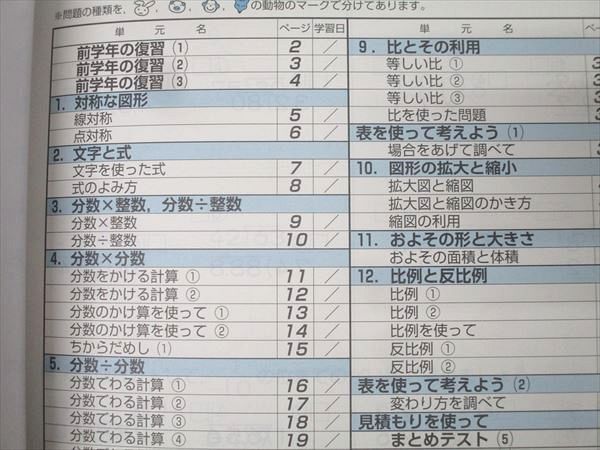 ※問題の種類を、
の動物のマークで分けてあります。
単元名 ページ 学習日
前学年の復習 (1) 2 /
前学年の復習 (2) 3 /
前学年の復習 (3) 4 /
1. 対称な図形
線対称 5 /
点対称 6 /
2. 文字と式
文字を使った式 7 /
式のよみ方 8 /
3. 分数×整数, 分数÷整数
分数×整数 9 /
分数÷整数 10 /
4. 分数×分数
分数をかける計算 ① 11 /
分数をかける計算 ② 12 /
分数のかけ算を使って ① 13 /
分数のかけ算を使って ② 14 /
ちからだめし (1) 15 /
5. 分数÷分数
分数でわる計算 ① 16 /
分数でわる計算 ② 17 /
分数でわる計算 ③ 18 /
分数でわる計算 ④ 19 /
単元名
9. 比とその利用
等しい比 ①
等しい比 ②
等しい比 ③
比を使った問題
表を使って考えよう (1)
場合をあげて調べて
10. 図形の拡大と縮小
拡大図と縮図
拡大図と縮図のかき方
縮図の利用
11. およその形と大きさ
およその面積と体積
12. 比例と反比例
比例 ①
比例 ②
比例を使って
反比例 ①
反比例 ②
表を使って考えよう (2)
変わり方を調べて
見積もりを使って
まとめテスト (5)